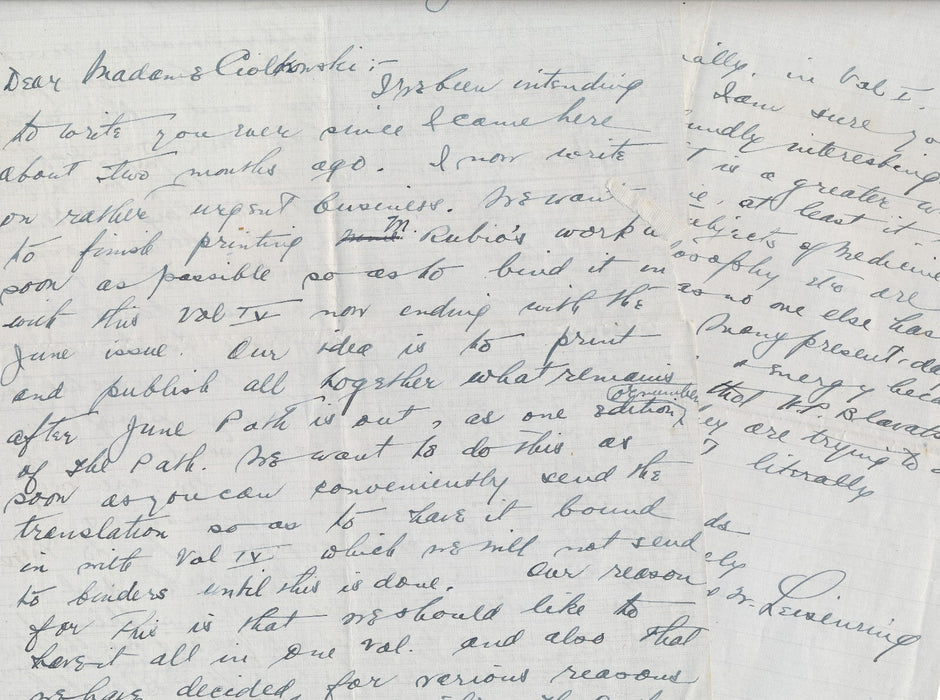 Dear Madame Ciolkowski:-
I've been intending
to write you ever since I came here
about two months ago. I now write
on rather urgent business. We want
to finish printing M Rubio's work a
soon as possible so as to bind it in
with this Vol IV now ending with the
June issue. Our idea is to print
and publish all together what remains
after June Path is out, as one edition
(or number)
of the Path. We want to do this as
soon as you can conveniently send the
translation so as to have it bound
in with Vol IV which we will not send
to binders until this is done. Our reason
for this is that we should like to
have it all in one Vol. and also that
we have decided, for various reasons
ially, in Vol I.
I am sure yo
undly interesting
T is a greater w
e, at least it
ubjects of Medicine
osophy etc are
as no one else has
Many present-da
& energy beca
that HP Blavats
ey are trying to
literally
ds
ely
W. Leisenring